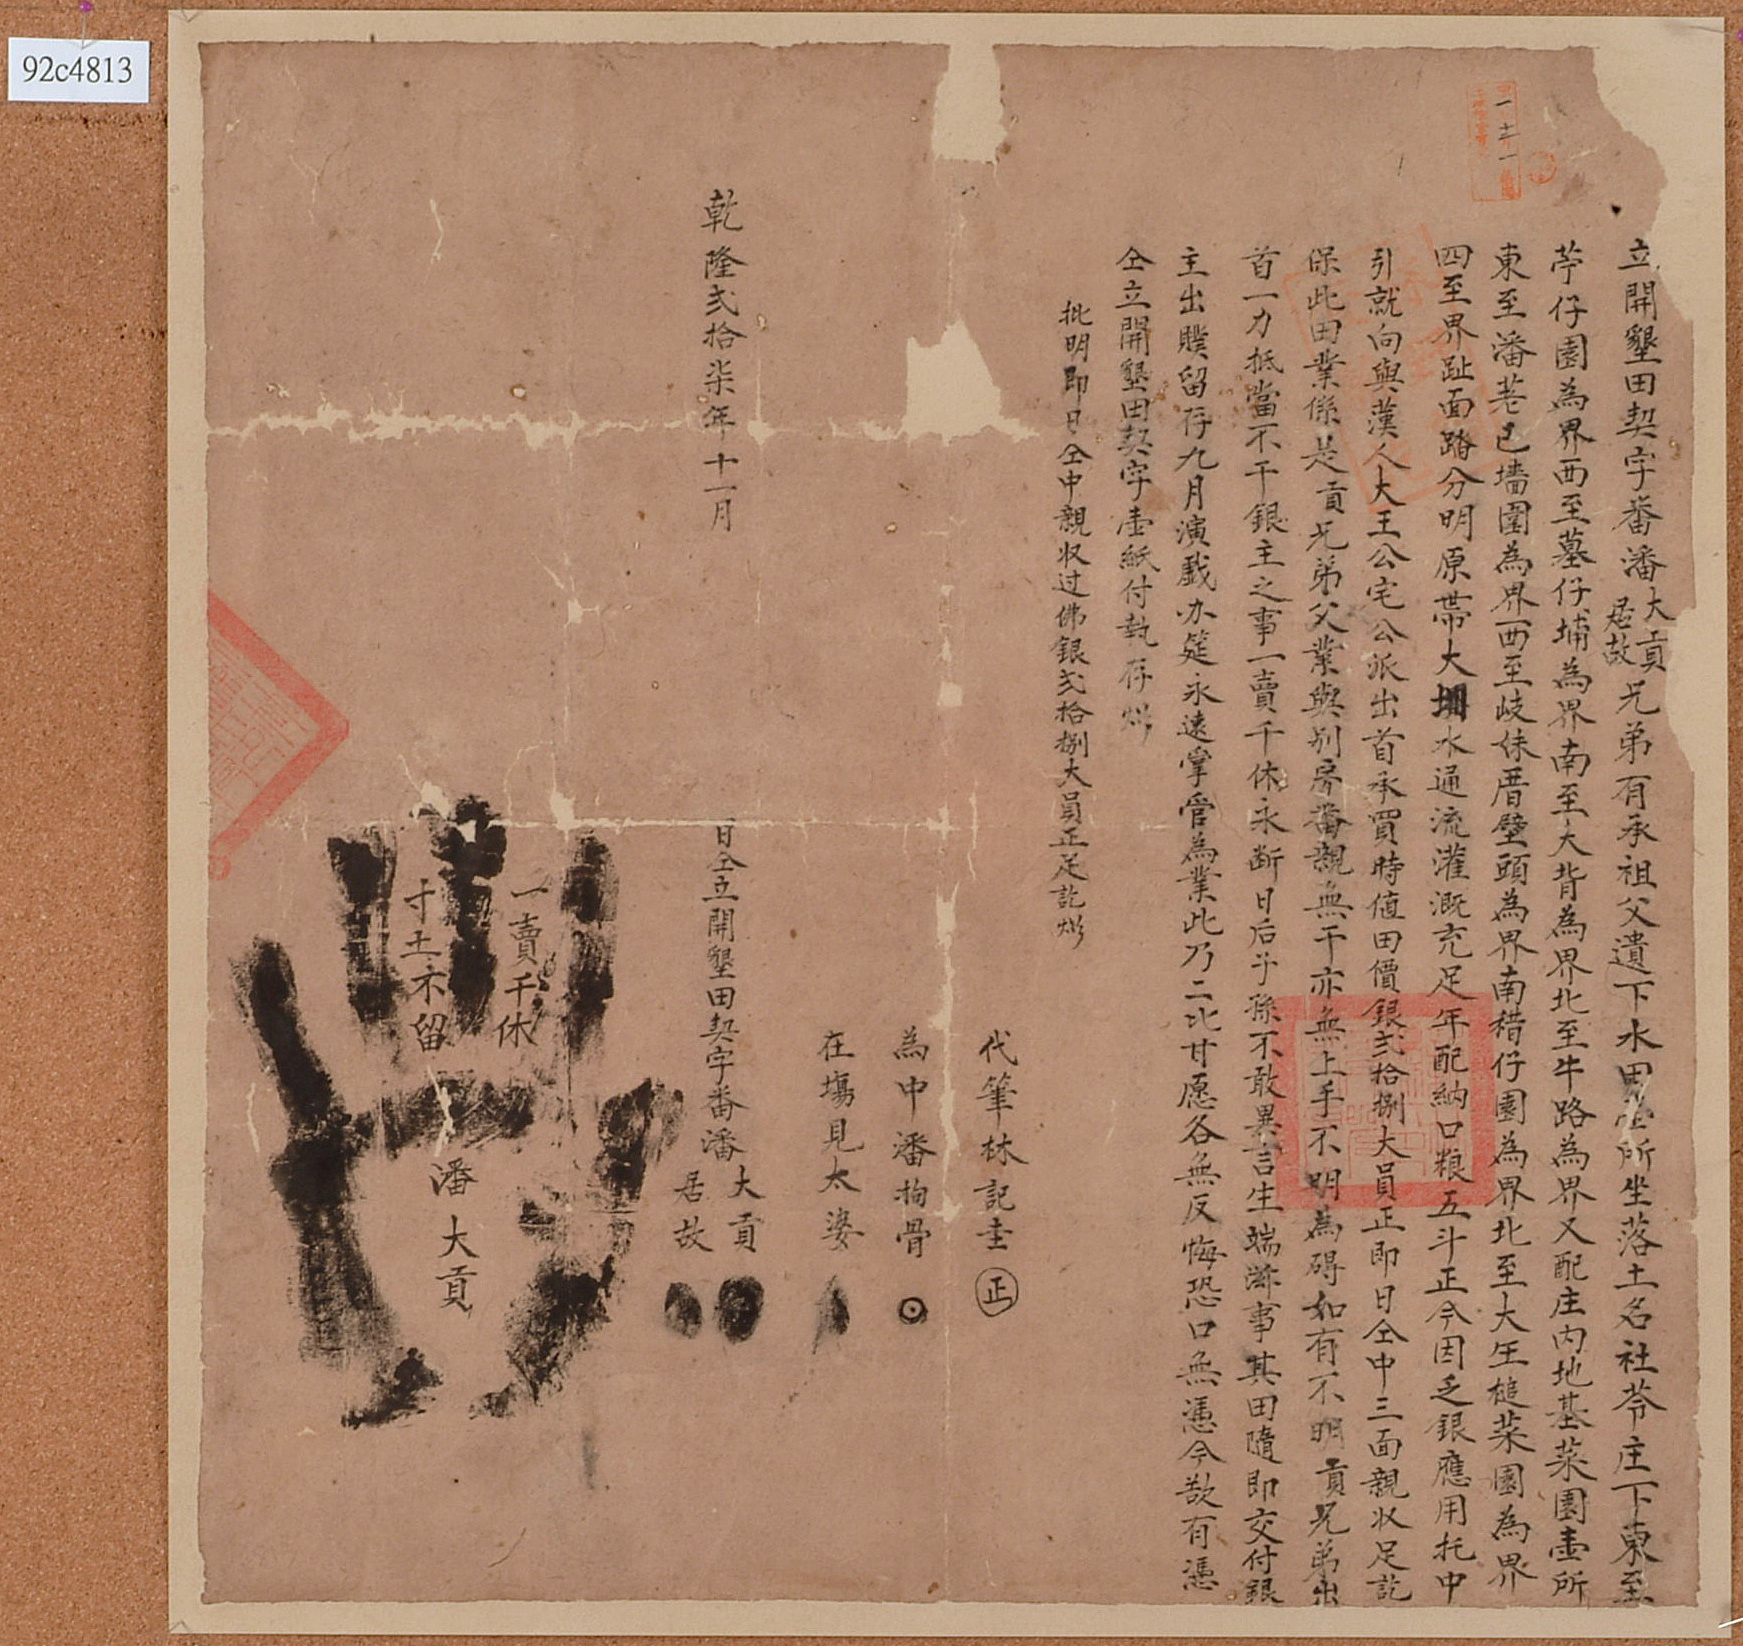 92c4813
立開墾田契字番潘大貢居故兄弟有承祖父遺下水田壹所坐落土名社苓庄下東至
苧仔園為界西至墓仔埔為界南至大背為界北至牛路為界又配庄内地基菜園壹所
東至潘荖已墻圍為界西至歧佅厝壁頭為界南稓仔園為界北至大王槌菜園為界
四至界趾面踏分明原帶大圳水通流灌溉充足年配納口粮五斗正今因乏銀應用托中
引就向與漢人大王公宅公派出首承買時值田價銀弍拾捌大員正即日仝中三面親收足訖
保此田業係是貢兄弟父業與别房番親無干亦無上手不明為碍如有不明貢兄弟出
首一力抵當不干銀主之事一賣千休永斷日后子孫不敢異言生端滋事其田隨即交付銀
主出贌留存九月演戲办筵永遠掌管為業此乃二比甘愿各無反悔恐口無憑今欲有憑
仝立開墾田契字壹紙付執存炤
批明即日仝中親收过佛銀弍拾捌大員正足訖炤
代筆林記圭 正
為中潘拘骨
在塲見太婆
乾隆弍拾柒年十一月 日仝立開墾田契字番潘大貢居故
一賣千休
寸土不留
潘大貢